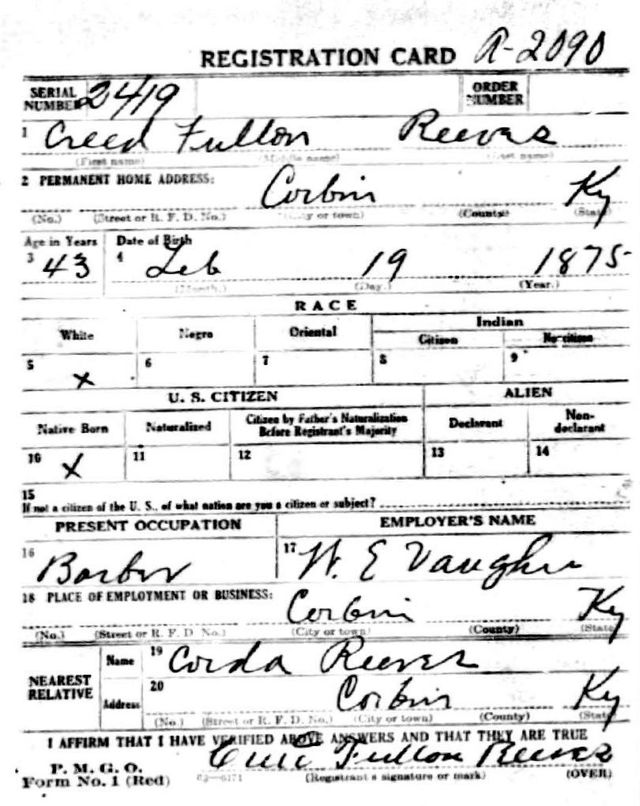 REGISTRATION CARD A-2090
SERIAL NUMBER 2419 ORDER NUMBER
1 Creed Fulton Reeves
(First name) (Middle name) (Last name)
2 PERMANENT HOME ADDRESS: Corbin Ky
(No.) (Street or R. F. D. No.) (City or town) (County) (State)
Age in Years Date of Birth
3 43 4 Feb 19 1875
(Month.) (Day.) (Year.)
RACE
White Negro Oriental Indian
Citizen Noncitizen
5 X 6 7 8 9
U. S. CITIZEN ALIEN
Native Born Naturalized Citizen by Father's Naturalization Before Registrant's Majority Declarant Non-declarant
10 X 11 12 13 14
15
If not a citizen of the U. S., of what nation are you a citizen or subject?
PRESENT OCCUPATION EMPLOYER'S NAME
16 Barber 17 W. E Vaughn
18 PLACE OF EMPLOYMENT OR BUSINESS: Corbin Ky
(No.) (Street or R. F. D. No.) (City or town) (County) (State)
NEAREST RELATIVE Name 19 Corda Reeves
Address 20 Corbin Ky
(No.) (Street or R. F. D. No.) (City or town) (County) (State)
I AFFIRM THAT I HAVE VERIFIED ABOVE ANSWERS AND THAT THEY ARE TRUE
P. M. G. O.
Form No. 1 (Red) 03—6171 Fulton Reeves
(Registrant's signature or mark) (OVER)